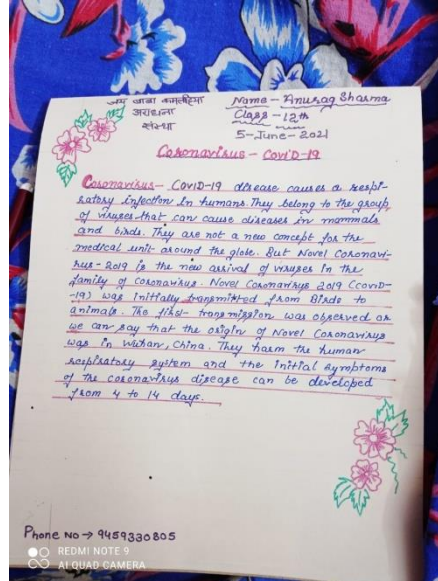 जय बाबा कमलाहिया
अराधना
संस्था
Name - Anurag Sharma
Class - 12th
5 - June - 2021
Coronavirus - CoviD-19
Coronavirus - CoviD-19 disease causes a respi-
ratory infection in humans. They belong to the group
of viruses that can cause diseases in mammals
and birds. They are not a new concept for the
medical unit around the globe. But Novel Coronavi-
rus - 2019 is the new arrival of viruses in the
family of coronavirus. Novel Coronavirus 2019 (COVID
-19) was initially transmitted from Birds to
animals. The first- transmission was observed or
we can say that the origin of Novel Coronavirus
was in Wuhan, China. They harm the human
respiratory system and the initial symptoms
of the coronavirus disease can be developed
from 4 to 14 days.
Phone No → 9459330805
REDMI NOTE 9
AI QUAD CAMERA